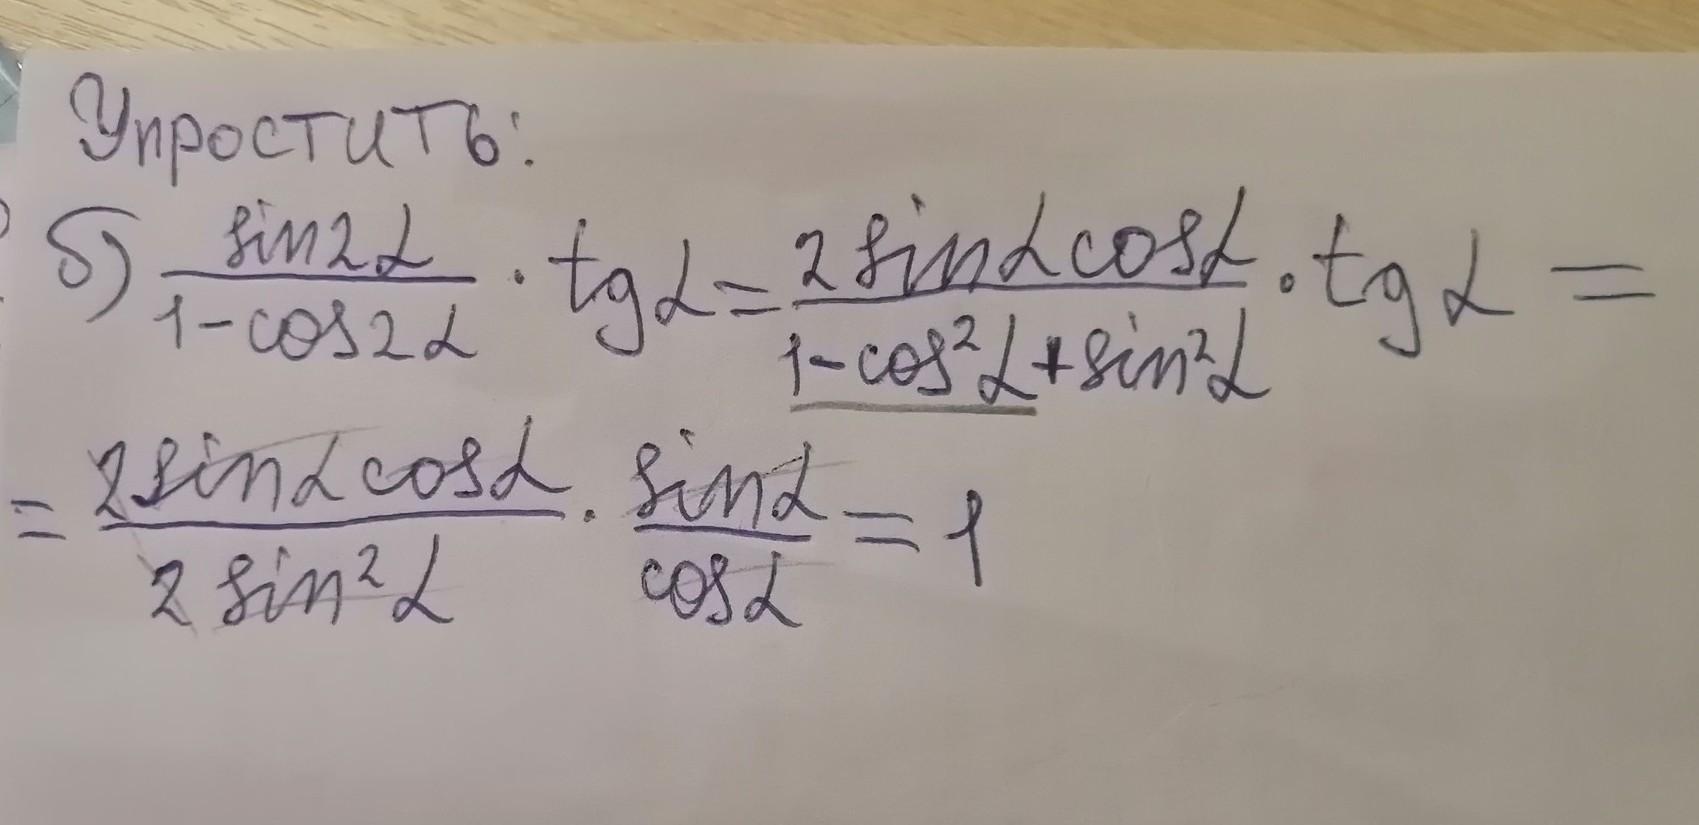 Упростить:
б) sin2α/(1-cos2α) · tgα = 2sinαcosα/(1-cos²α+sin²α) · tgα =
= 2sinαcosα/(2sin²α) · sinα/cosα = 1